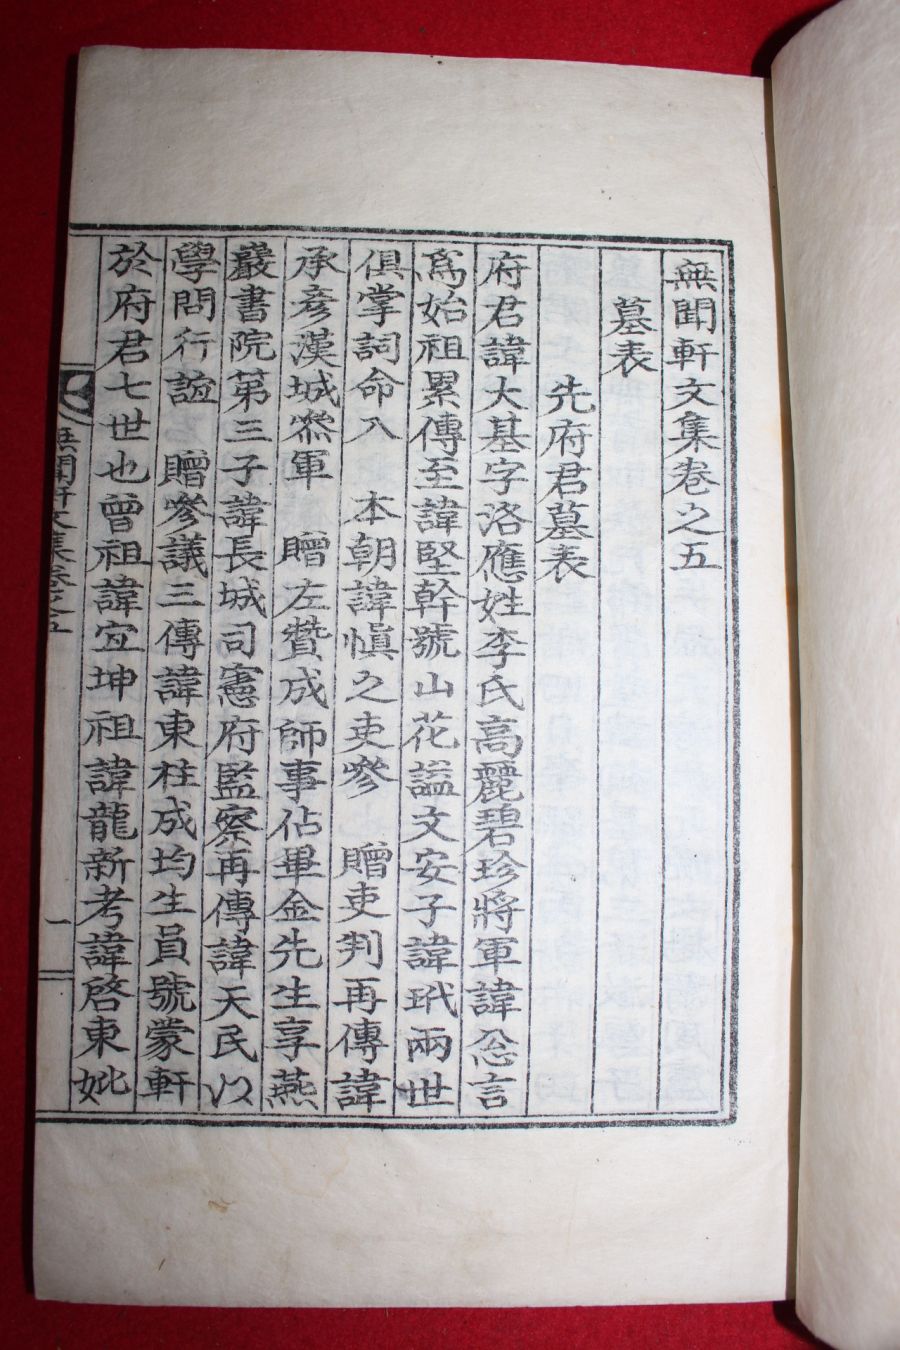 無聞軒文集卷之五
墓表
先府君墓表
府君諱大基字洛應姓李氏高麗碧珍將軍諱忩言
爲始祖累傳至諱堅幹號山花謚文安子諱玳兩世
俱掌詞命入 本朝諱愼之吏參 贈吏判再傳諱
承彦漢城叅軍 贈左贊成師事佔畢金先生享燕
巖書院第三子諱長城司憲府監察再傳諱天民以
學問行誼 贈參議三傳諱東柱成均生員號蒙軒
於府君七世也曾祖諱宜坤祖諱龍新考諱啓東妣
無聞軒文集卷之五
一